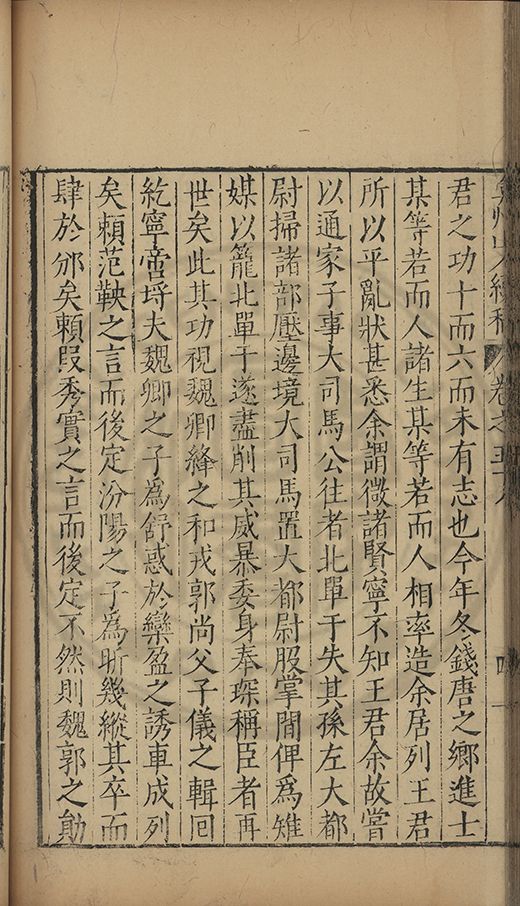 弇州山人續稿 卷之五十八 四
君之功十而六而未有志也今年冬錢唐之鄉進士
某等若而人諸生某等若而人相率造余居列王君
所以平亂狀甚悉余謂微諸賢寧不知王君余故嘗
以通家子事大司馬公往者北單于失其孫左大都
尉掃諸部壓邊境大司馬置大都尉股掌間俾為雉
媒以籠北單于遂盡削其威暴委身奉琛稱臣者再
世矣此其功視魏卿絳之和戎郭尚父子儀之輯回
紇寧啻埒夫魏卿之子為舒惑於欒盈之誘車成列
矣賴范鞅之言而後定汾陽之子為昕幾縱其卒而
肆於邠矣賴段秀實之言而後定不然則魏郭之勛